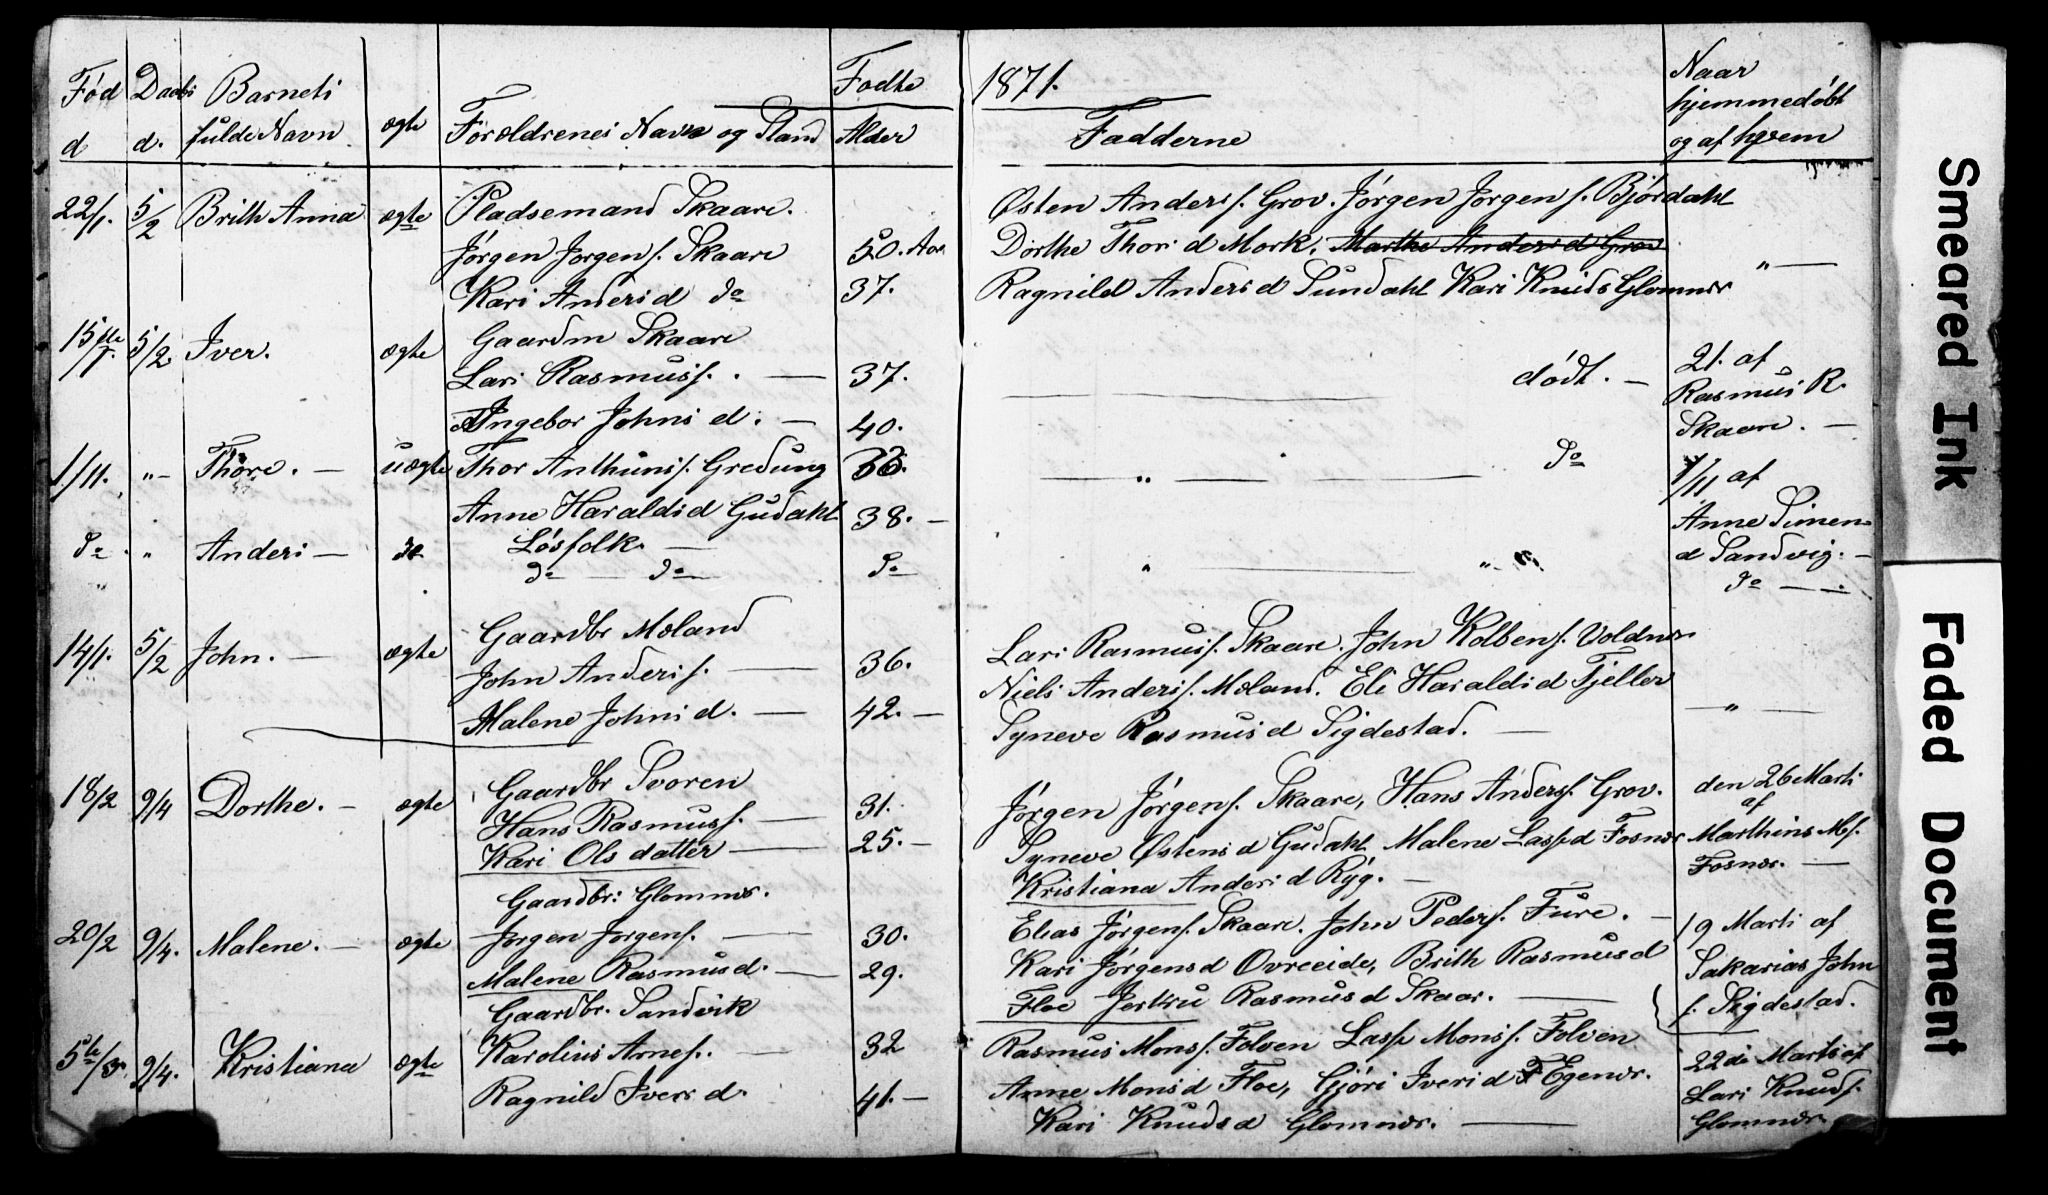 Fød Daabs Barnets ægte Forældrenes Navn og Stand Fødte Alder
d d. fulde Navn
22/1. 5/2 Brith Anna ægte Pladsemand Skaare.
Jørgen Jørgens. Skaare 50. Aar
Kari Anders d do 37.
15de/1. 5/2 Iver. ægte Gaardm Skaare
Lars Rasmuss. — 37.
Ingebor Johns d. — 40.
1/11. „— Thore. — uægte Thor Anthuns s. Gredung 33.
Anne Haralds d Gudahl 38. —
do „ Anders — do Løsfolk —
do — do — do
14/1. 5/2 John. — ægte Gaardbr Mæland
John Anders s. — 36.
Malene Johns d. — 42. —
18/2 9/4 Dorthe. — ægte Gaardbr Svoren
Hans Rasmuss. — 31.
Kari Ols datter — 25. —
20/2 9/4. Malene. — ægte Gaardbr: Glomnæs.
Jørgen Jørgens. — 30.
Malene Rasmus d. — 29.
5te/3. 9/4. Kristiana ægte Gaardbr. Sandvik
Karolius Arnes. — 32
Ragnild Ivers d. 41. —
1871.
Fadderne
Naar
hjemmedøbt
og af hvem
Østen Anders s. Grov. Jørgen Jørgens s. Bjørdahl
Dorthe Thors d Mork, Marthe Anders d Grov
Ragnild Anders d Sundahl Kari Knuds Glomnæs
„ —
— død t. — 21. af
Rasmus R.
Skaare. —
— „ — do 1/11 af
Anne Simen
d Sandvig. —
„ — „ — „ do — —
Lars Rasmuss. Skaare. John Kolbens. Voldnæs
Niels Anderss. Mæland. Eli Haralds d Tjeller
Syneve Rasmus d Sigdestad. —
— „ —
Jørgen Jørgens. Skaare, Hans Anders s. Grov. den 26 Marts
af
Syneve Østens d Gudahl Malene Lasse d Fosnæs Marthins M s.
Kristiana Anders d Ryg. — Fosnæs. —
Elias Jørgens. Skaare. John Peders. Fure. — 19 Marts af
Kari Jørgensd Ovreeide, Brith Rasmus d Sakarias John
Floe Jertru Rasmus d Skaar. — s. Sigdestad.
Rasmus Monss. Folven Lasse Monss. Folven
22de Marts af
Anne Mons d Floe, Gjøri Ivers d Egenæs. Lars Knuds s.
Kari Knuds d Glomnæs. — Glomnæs.
Smeared Ink
Faded Document